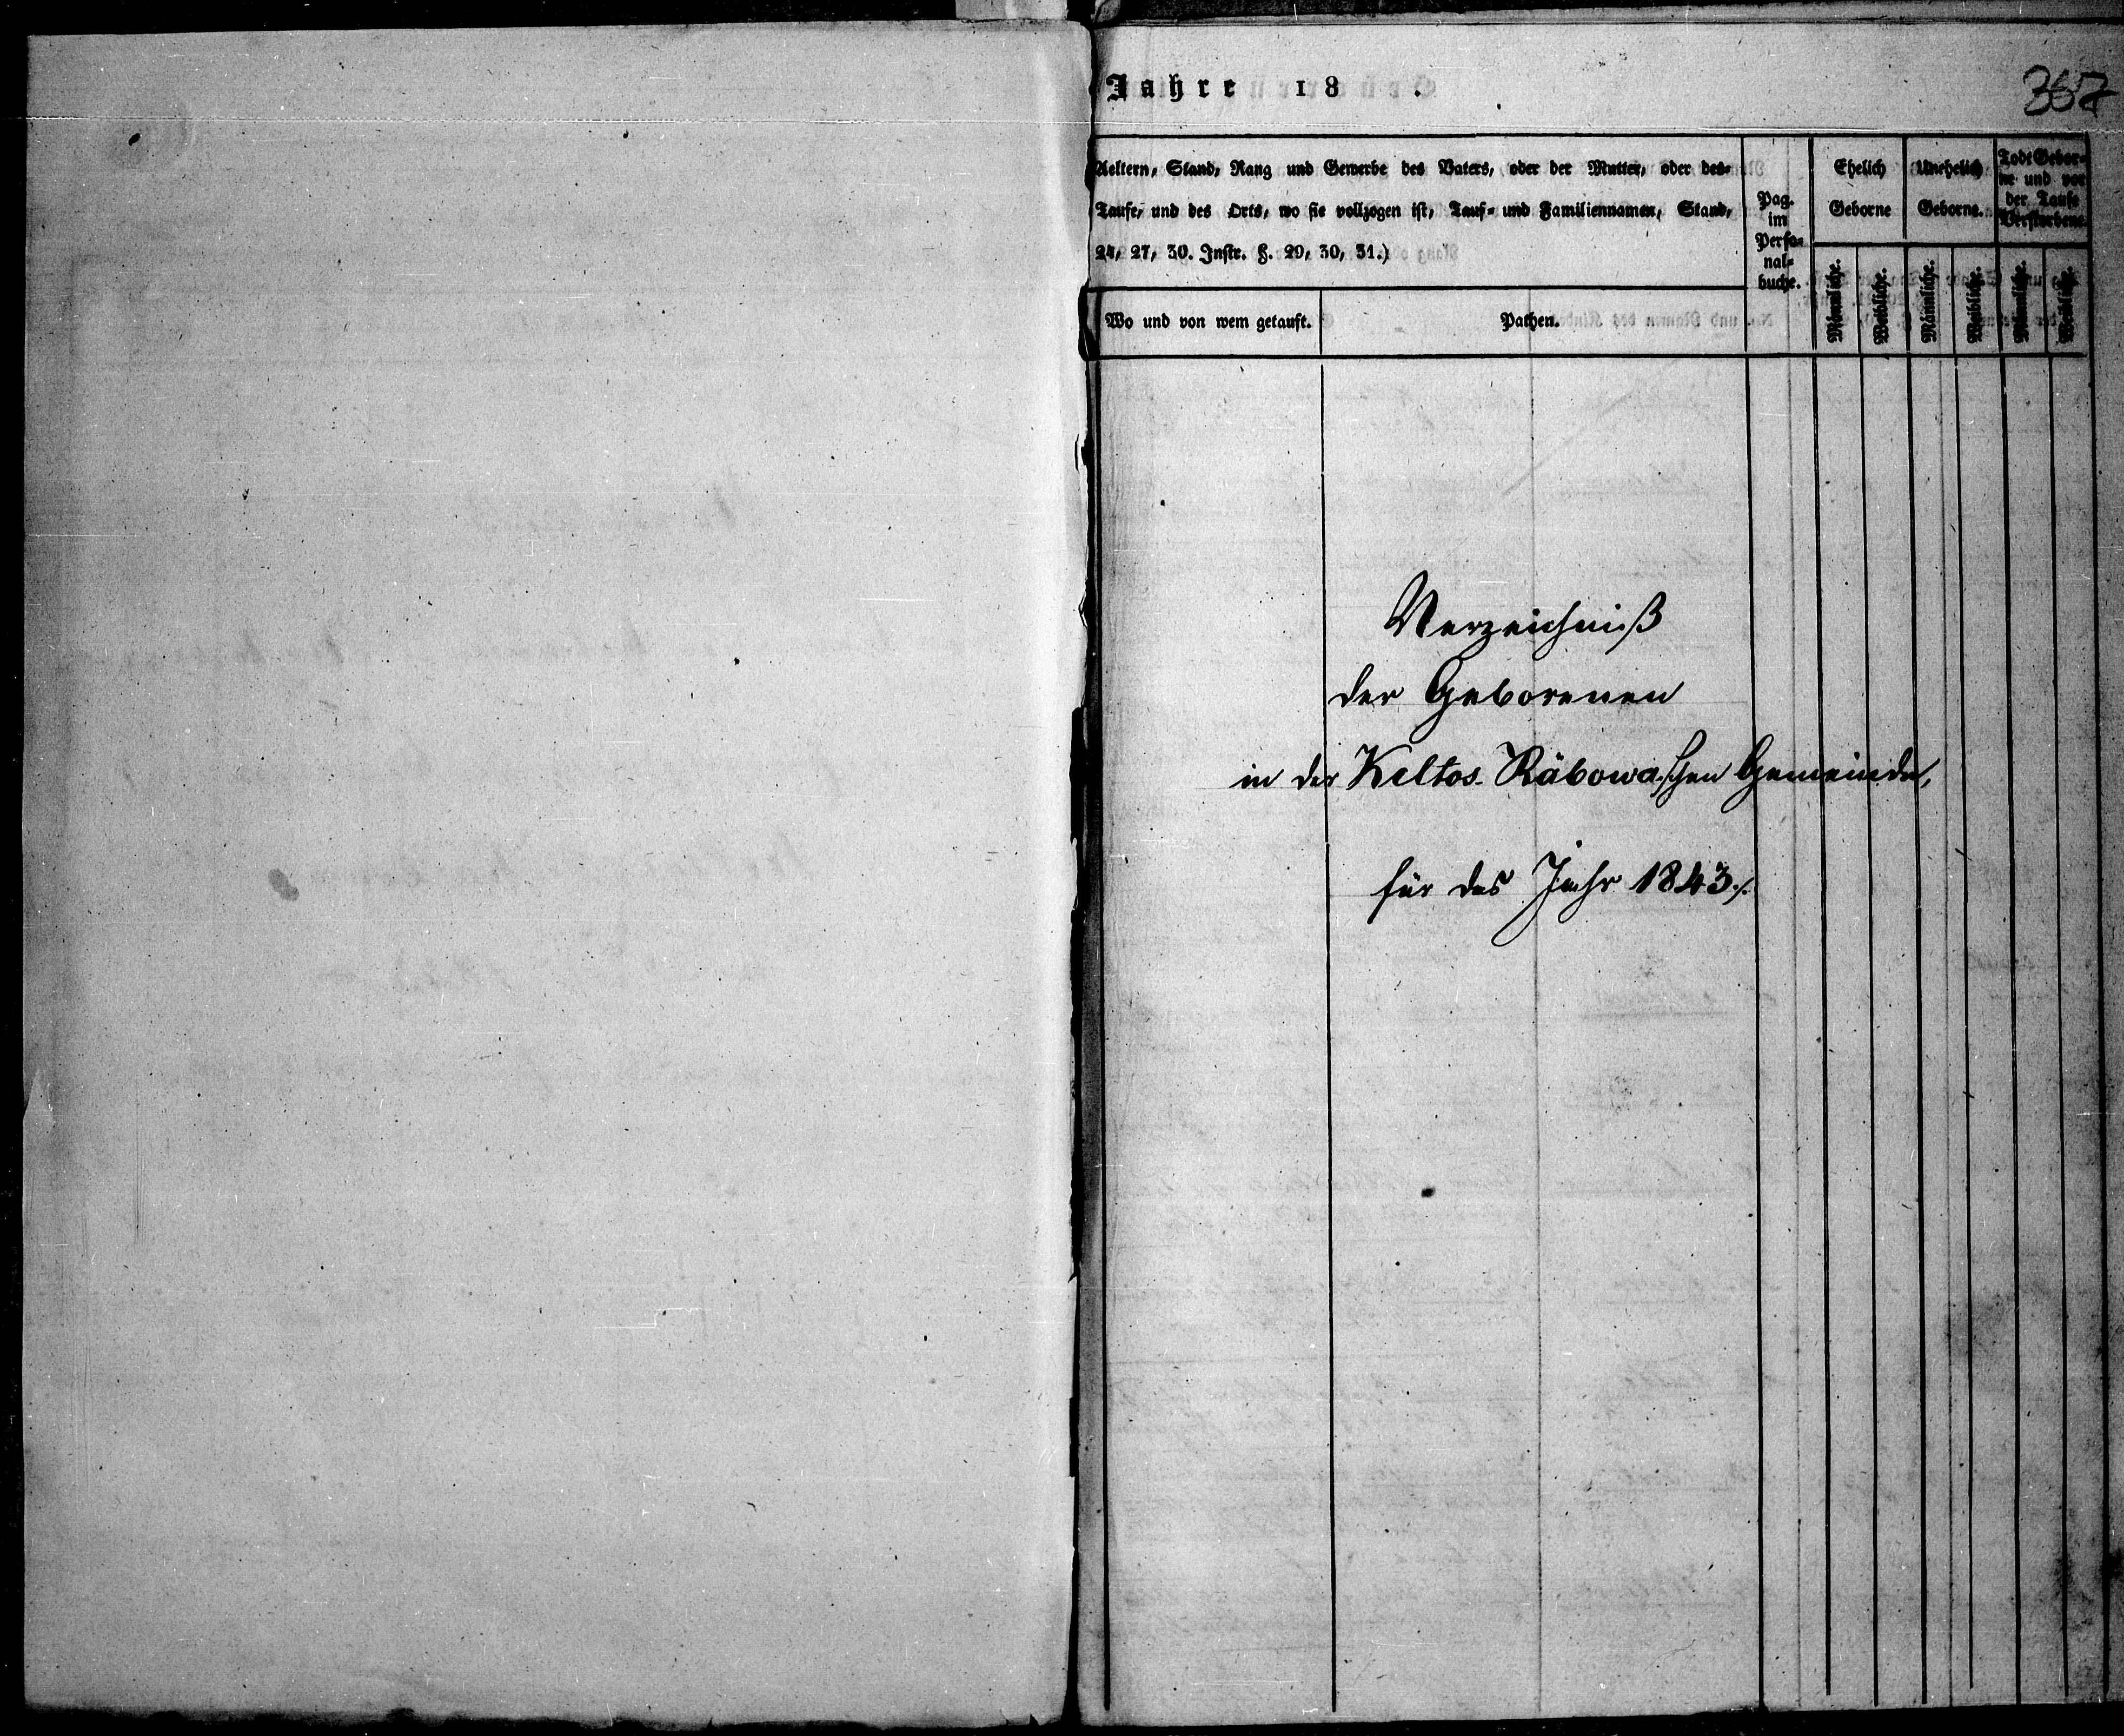 Jahre 18 .
367
Aeltern, Stand, Rang und Gewerbe des Vaters, oder der Mutter, oder des-
Taufe, und des Orts, wo sie vollzogen ist, Tauf- und Familiennamen, Stand,
24, 27, 30. Instr. §. 29, 30, 31.)
Wo und von wem getauft.
Pathen.
Pag.
im
Perso-
nal-
buche.
Ehelich
Geborne
Männliche.
Weibliche.
Unehelich
Geborne.
Männliche.
Weibliche.
Todt Gebor-
ne und vor
der Taufe
Verstorbene
Männliche.
Weibliche.
Verzeichniß
der Geborenen
in der Keltos-Räbowaschen Gemeinde,
für das Jahr 1843./.